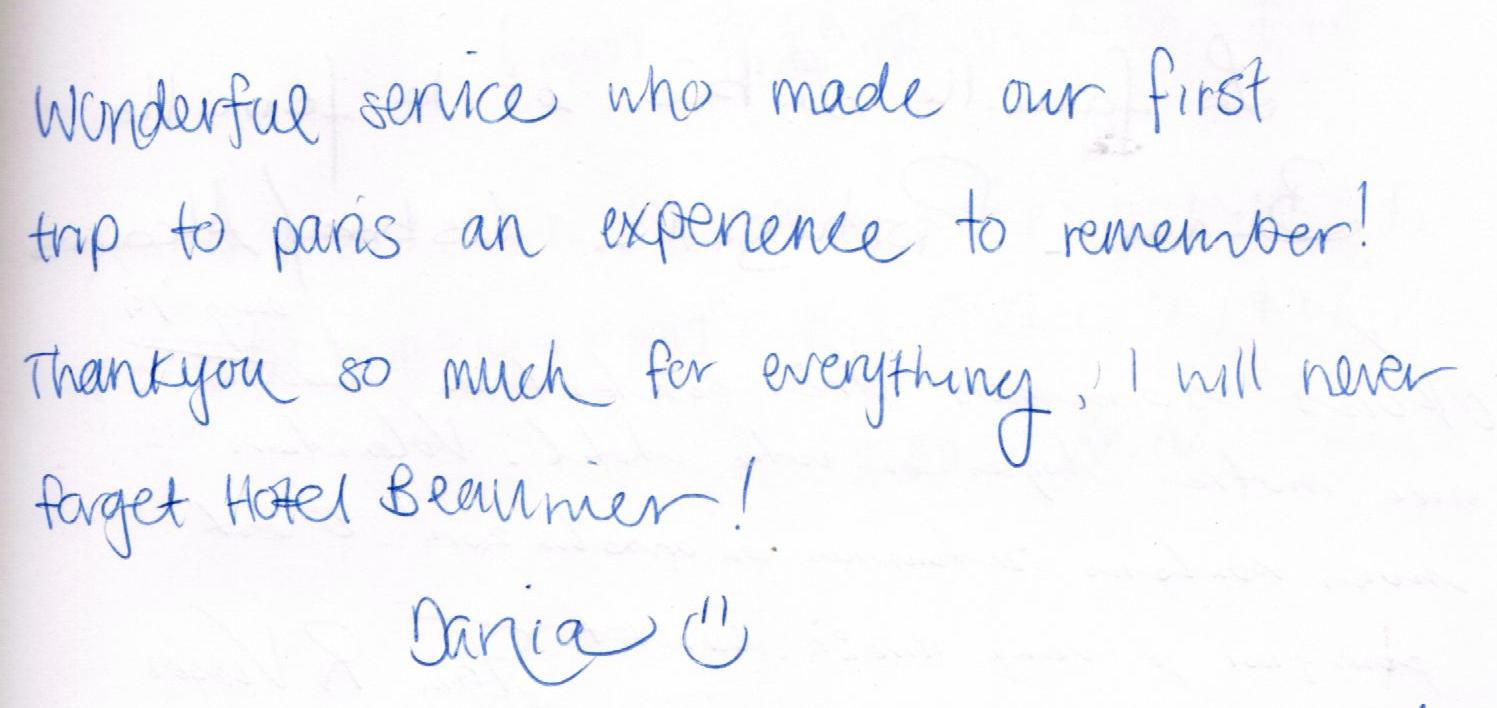 Wonderful service who made our first
trip to paris an experience to remember!
Thankyou so much for everything, I will never
forget Hotel Beaunier!
Dania